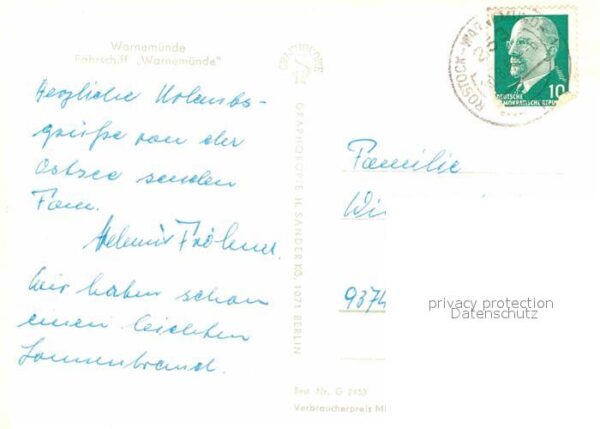 Warnemünde
Fährschiff „Warnemünde"
Herzliche Urlaubs-
grüße von der
Ostsee senden
Fam.
Helmut Fröhner.
Wir haben schon
einen leichten
Sonnenbrand.
GRAPHOKOPIE H. SANDER KG, 1071 BERLIN
Best.-Nr. G 2453
Verbraucherpreis M
ROSTOCK-WARNEMÜNDE
10
DEUTSCHE
DEMOKRATISCHE REPUBLIK
Familie
Wi
9374
privacy protection
Datenschutz